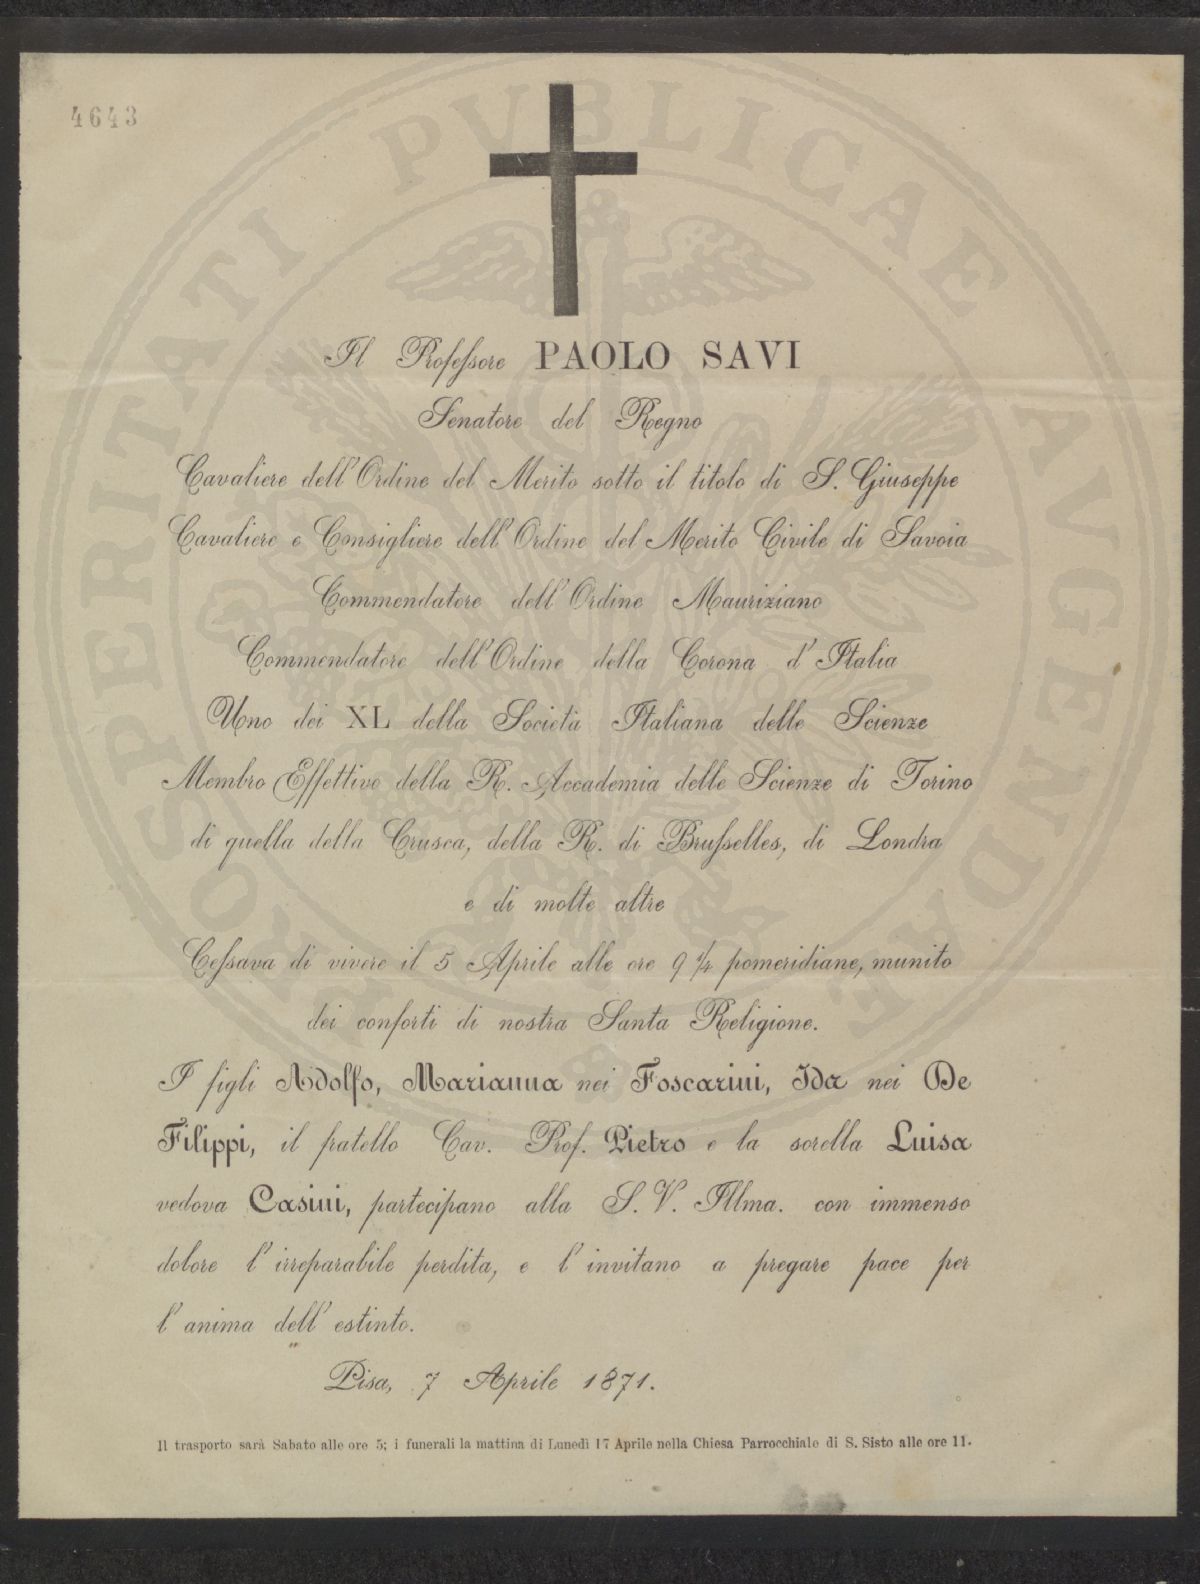 4643
Il Professore PAOLO SAVI
Senatore del Regno
Cavaliere dell'Ordine del Merito sotto il titolo di S. Giuseppe
Cavaliere e Consigliere dell'Ordine del Merito Civile di Savoia
Commendatore dell'Ordine Mauriziano
Commendatore dell'Ordine della Corona d'Italia
Uno dei XL della Società Italiana delle Scienze
Membro Effettivo della R. Accademia delle Scienze di Torino
di quella della Crusca, della R. di Brusselles, di Londra
e di molte altre
Cessava di vivere il 5 Aprile alle ore 9 1/4 pomeridiane, munito
dei conforti di nostra Santa Religione.
I figli Adolfo, Marianna nei Foscarini, Ida nei De
Filippi, il fratello Cav. Prof. Pietro e la sorella Luisa
vedova Casini, partecipano alla S. V. Illma. con immenso
dolore l'irreparabile perdita, e l'invitano a pregare pace per
l'anima dell'estinto.
Pisa, 7 Aprile 1871.
Il trasporto sarà Sabato alle ore 5; i funerali la mattina di Lunedì 17 Aprile nella Chiesa Parrocchiale di S. Sisto alle ore 11.
PROSPERITATI PVBLICAE AVGENDAE